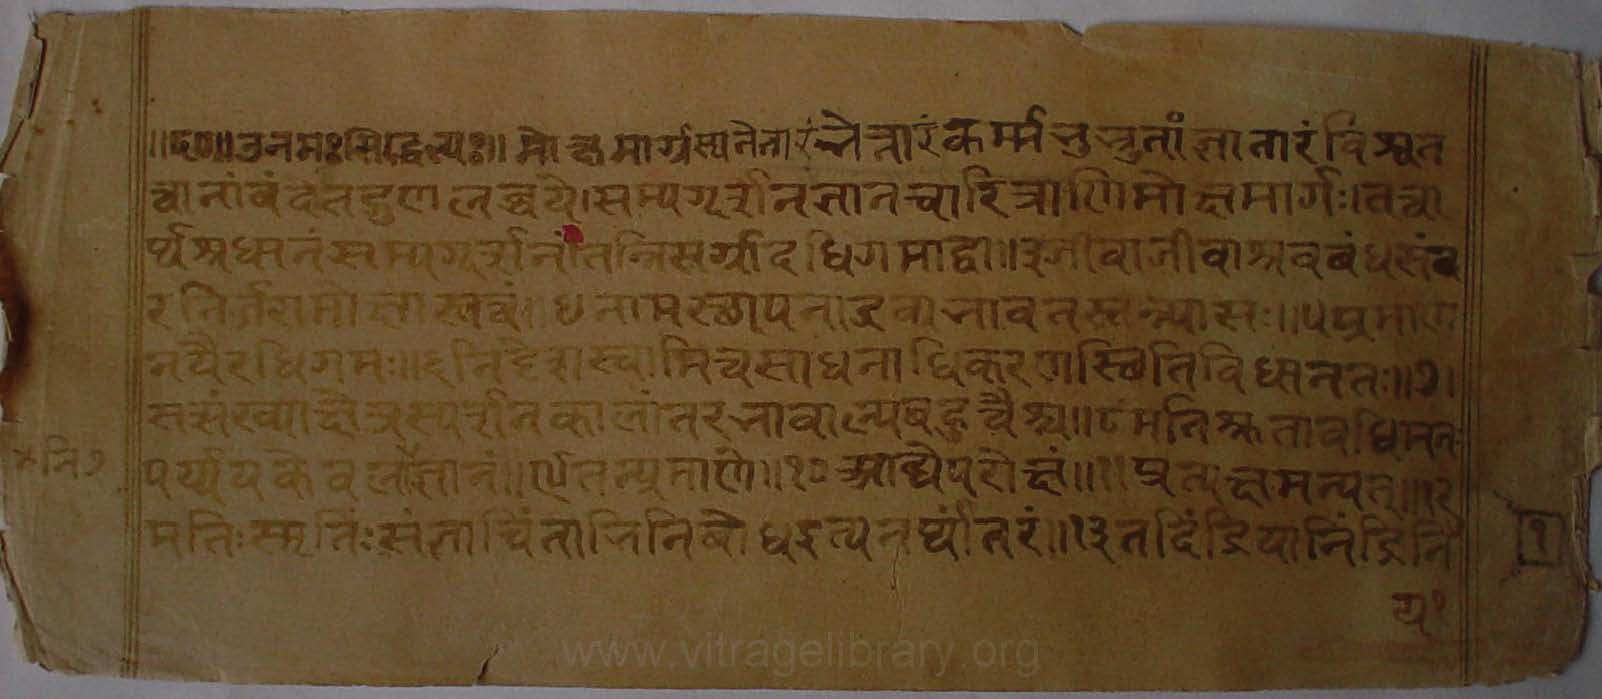 ॥८०॥उनमःसिद्धेभ्यः॥ मोक्षमार्गस्यनेतारंभेत्तारंकर्म्मभुभृतांज्ञातारंविश्वत
त्वानांवंदेतद्गुणलब्धये।सम्पग्दर्शनज्ञानचारित्राणिमोक्षमार्गः।तत्वा
र्थश्रधानंसम्पग्दर्शनं॥तन्निसर्गादधिगमाद्वा॥३जीवाजीवाश्रवबंधसंव
रनिर्जरामोक्षास्तत्वं॥४नामस्छापनाद्रव्यभावतस्तन्न्यासः॥५प्रमाण
नयैरधिगमः॥६निर्देशस्वामित्वसाधनाधिकरणस्छितिविधानतः॥७।
सत्संख्याक्षेत्रस्पर्शनकालांतरभावाल्पबहुत्वैश्च॥८मतिश्रुतावधिमनः
पर्य्ययकेवलांज्ञानं॥९तत्प्रमाणे॥१०आद्येपरोक्षं॥११प्रत्यक्षमन्यत्॥१२
मतिःस्मृतिःसंज्ञाचिंताभिनिबोधइत्यनर्थांतरं॥१३तदिंद्रियानिंद्रिनि
य१
१
www.vitragelibrary.org